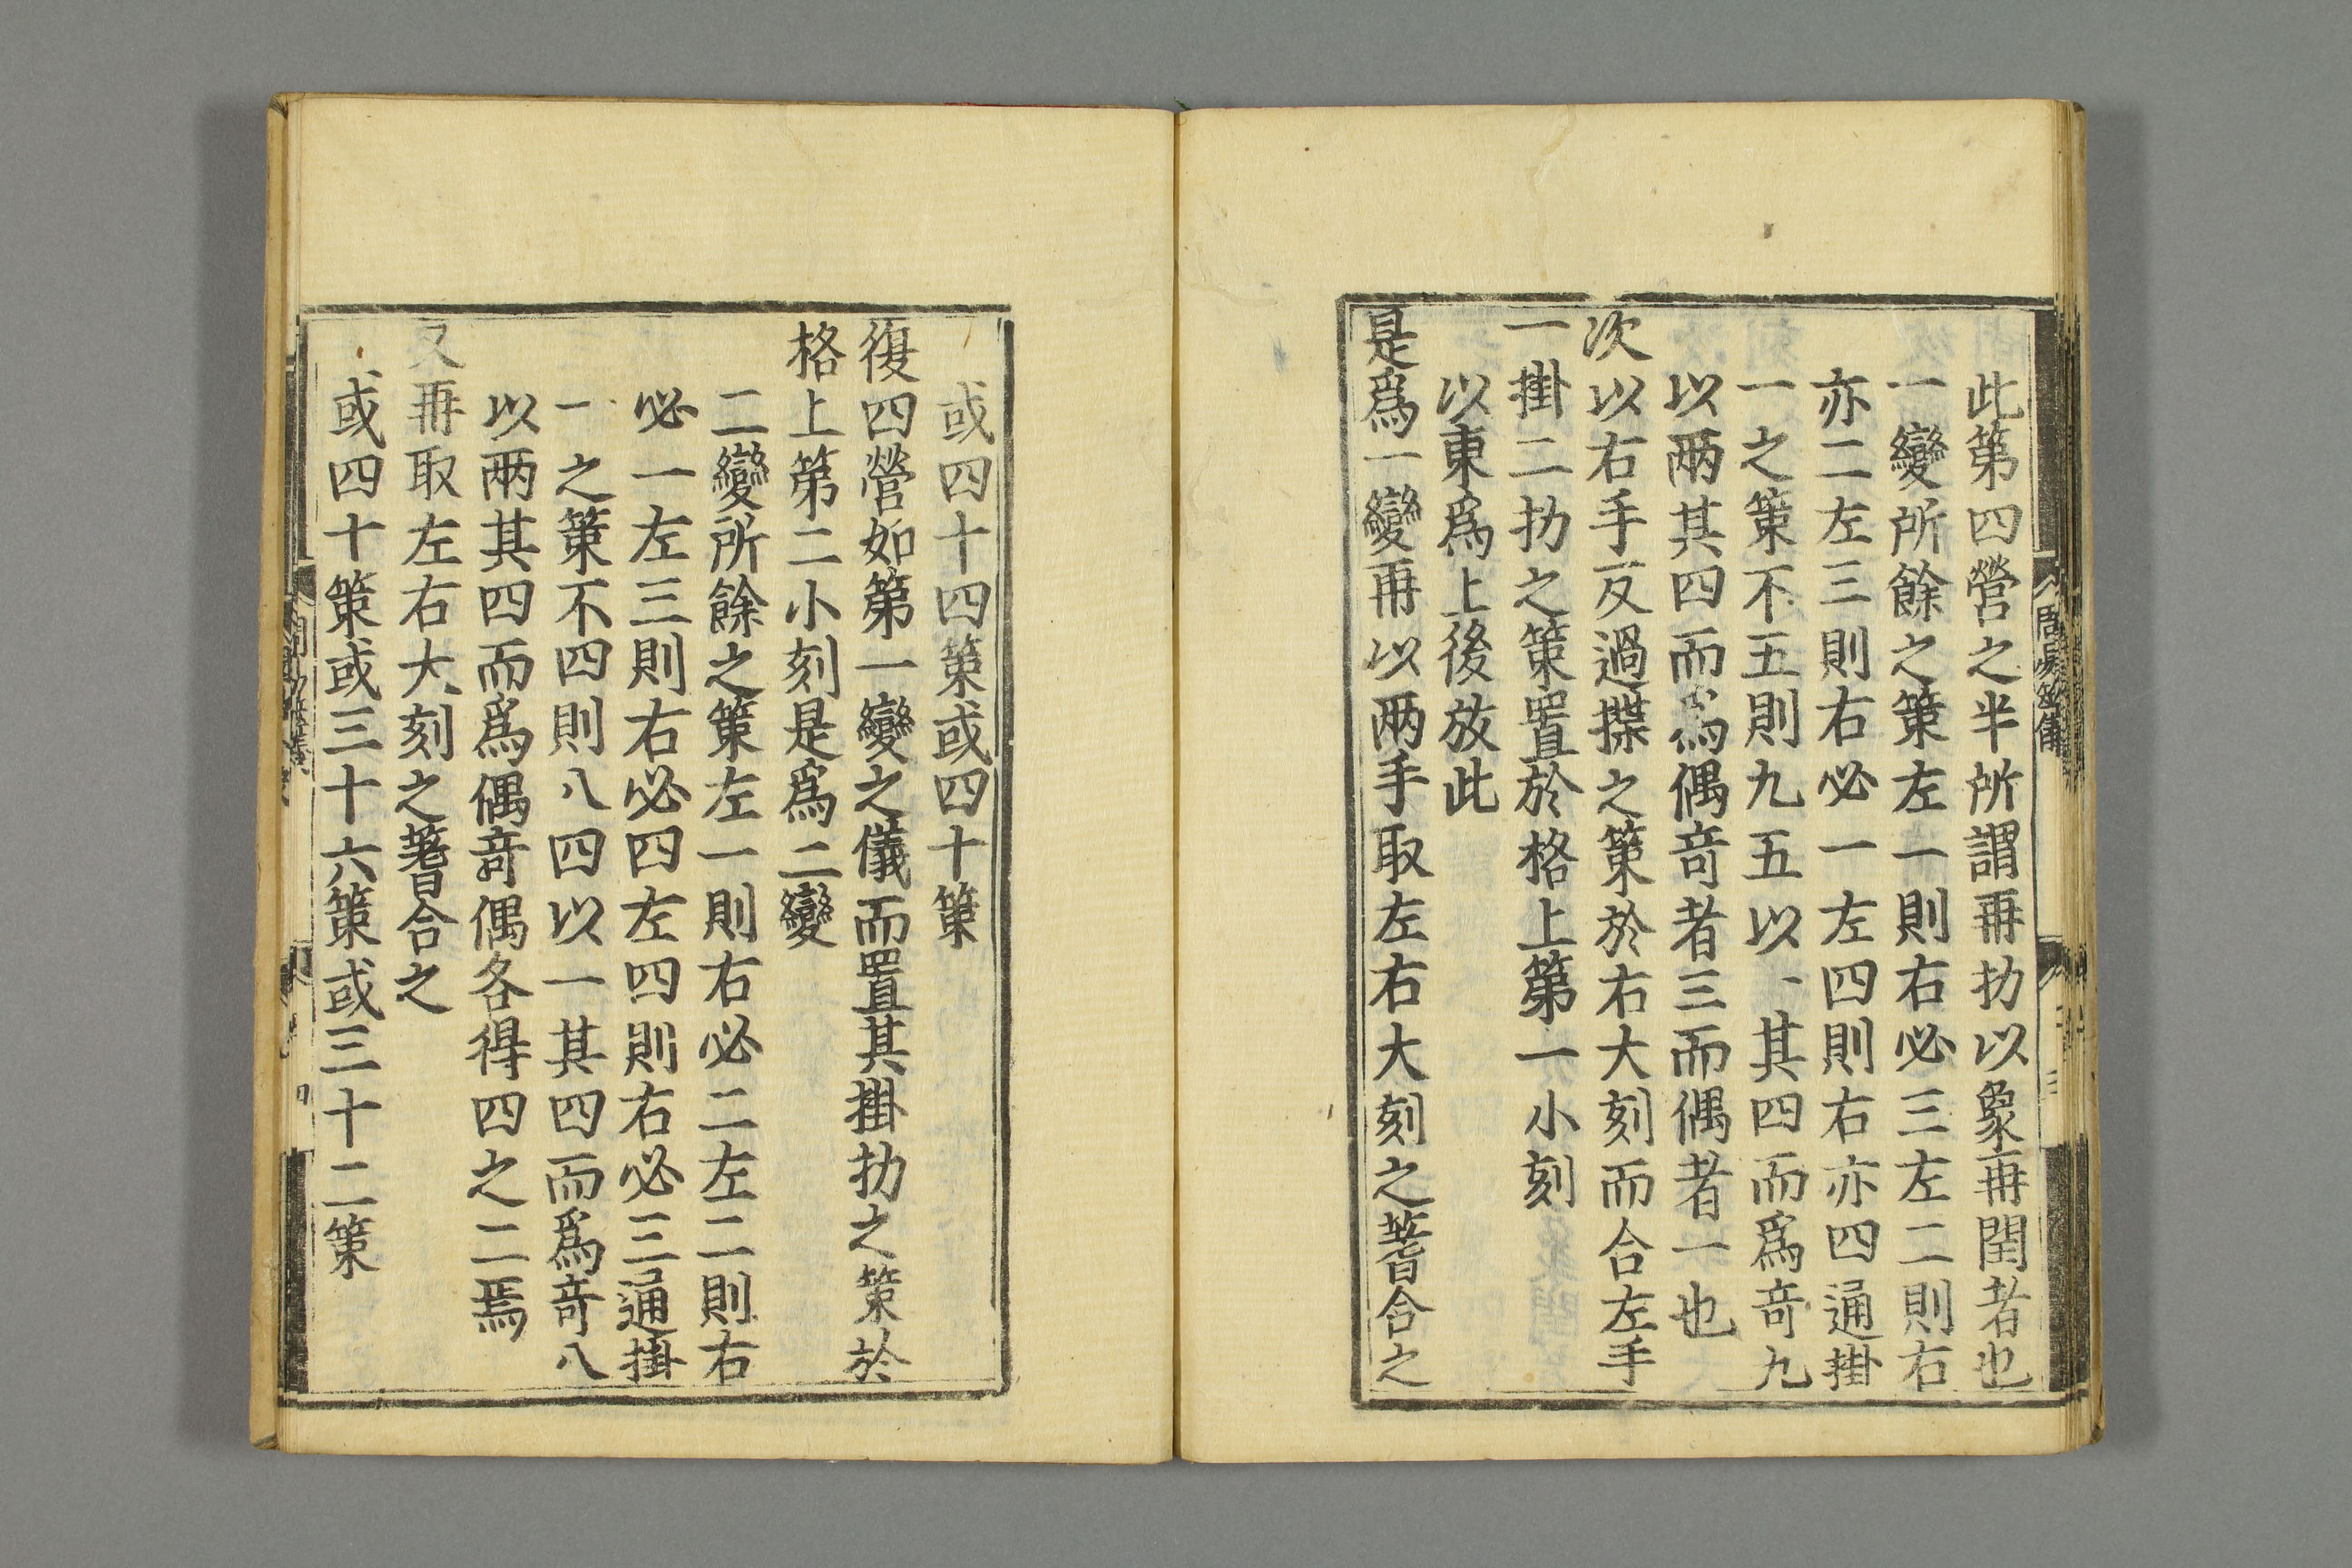 此第四營之半所謂再扐以象再閏者也
一變所餘之策左一則右必三左二則右
亦二左三則右必一左四則右亦四通掛
一之策不五則九五以一其四而爲奇九
以兩其四而爲偶奇者三而偶者一也
次以右手反過揲之策於右大刻而合左手
一掛二扐之策置於格上第一小刻
以東爲上後放此
是爲一變再以兩手取左右大刻之蓍合之
或四十四策或四十策
復四營如第一變之儀而置其掛扐之策於
格上第二小刻是爲二變
二變所餘之策左一則右必二左二則右
必一左三則右必四左四則右必三通掛
一之策不四則八四以一其四而爲奇八
以兩其四而爲偶奇偶各得四之二焉
又再取左右大刻之蓍合之
或四十策或三十六策或三十二策